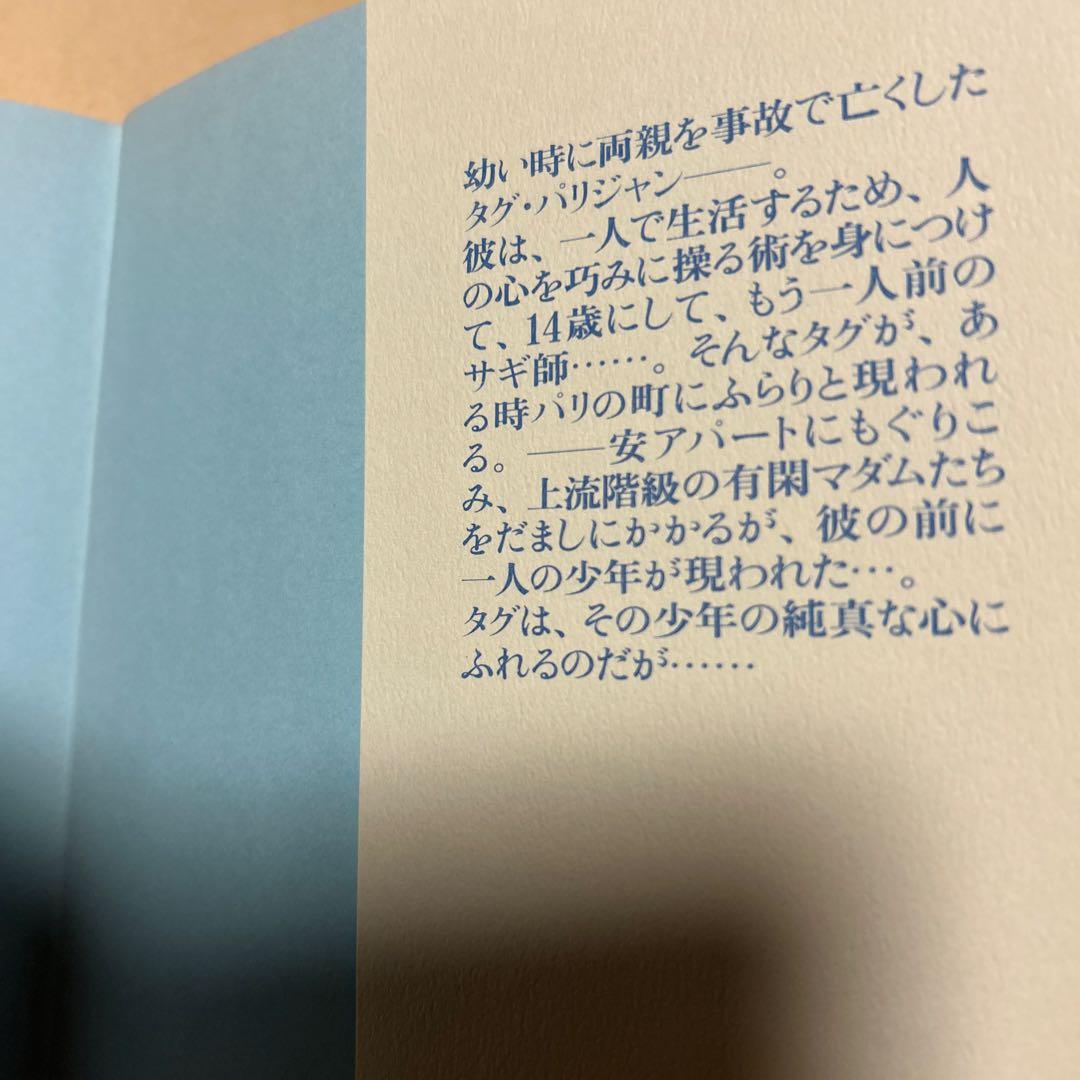 幼い時に両親を事故で亡くした
タグ・パリジャン――。
彼は、一人で生活するため、人
の心を巧みに操る術を身につけ
て、14歳にして、もう一人前の
サギ師……。そんなタグが、あ
る時パリの町にふらりと現われ
る。――安アパートにもぐりこ
み、上流階級の有閑マダムたち
をだましにかかるが、彼の前に
一人の少年が現われた…。
タグは、その少年の純真な心に
ふれるのだが……